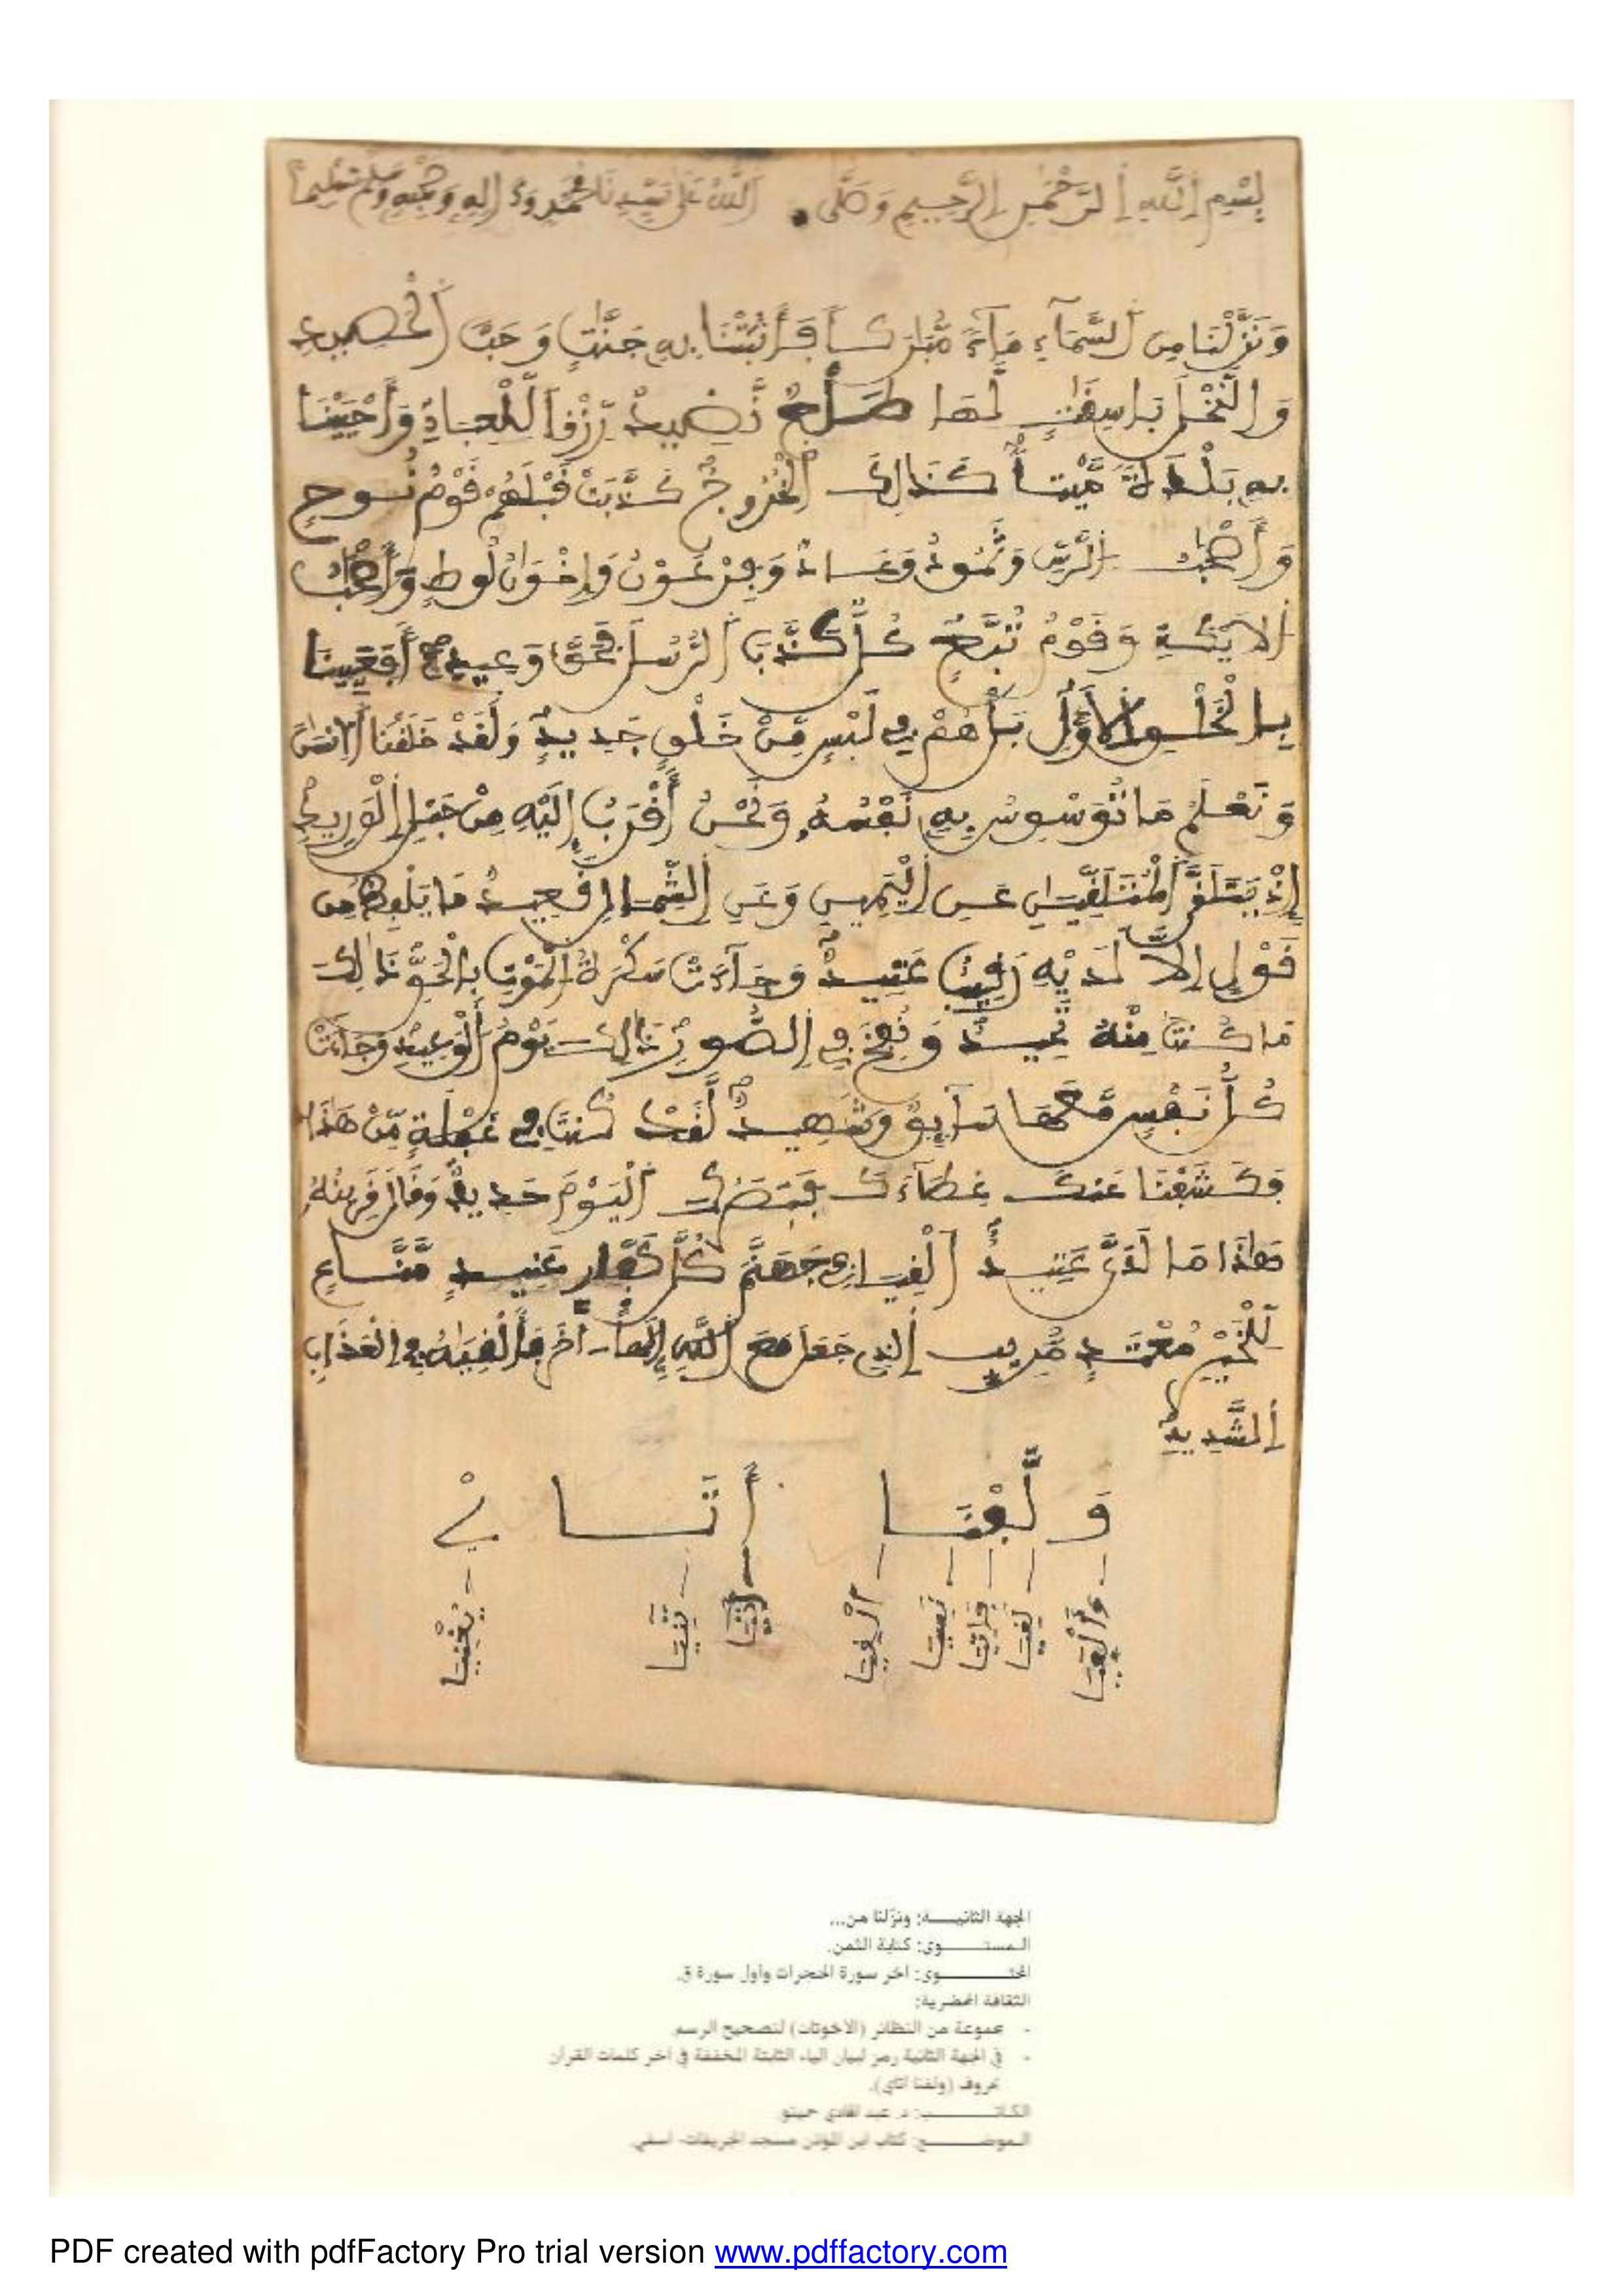 بِسْمِ اِللَّهِ اِلرَّحْمَٰنِ اِلرَّحِيمِ وَصَلَّى اَللَّهُ عَلَى سَيِّدِنَا مُحَمَّدٍ وَءَالِهِ وَصَحْبِهِ وَسَلَّمَ تَسْلِيماً
وَنَزَّلْنَا مِنَ اَلسَّمَآءِ مَآءٗ مُّبَٰرَكاٗ فَأَنۢبَتْنَا بِهِۦ جَنَّٰتٖ وَحَبَّ اَلْحَصِيدِ
وَالنَّخْلَ بَاسِقَٰتٖ لَّهَا طَلْعٞ نَّضِيدٞ رِّزْقاٗ لِّلْعِبَادِ وَأَحْيَيْنَا
بِهِۦ بَلْدَةٗ مَّيْتاٗ كَذَٰلِكَ اَلْخُرُوجُ كَذَّبَتْ قَبْلَهُمْ قَوْمُ نُوحٖ
وَأَصْحَٰبُ اُلرَّسِّ وَثَمُودُ وَعَادٞ وَفِرْعَوْنُ وَإِخْوَٰنُ لُوطٖ وَأَصْحَٰبُ
اُلَايْكَةِ وَقَوْمُ تُبَّعٖ كُلّٞ كَذَّبَ اَلرُّسُلَ فَحَقَّ وَعِيدِۦ أَفَعَيِينَا
بِالْخَلْقِ اِلَاوَّلِ بَلْ هُمْ فِے لَبْسٖ مِّنْ خَلْقٖ جَدِيدٖ وَلَقَدْ خَلَقْنَا اَلِانسَٰنَ
وَنَعْلَمُ مَا تُوَسْوِسُ بِهِۦ نَفْسُهُۥ وَنَحْنُ أَقْرَبُ إِلَيْهِ مِنْ حَبْلِ اِلْوَرِيدِ
إِذْ يَتَلَقَّى اَلْمُتَلَقِّيَٰنِ عَنِ اِلْيَمِينِ وَعَنِ اِلشِّمَالِ قَعِيدٞ مَّا يَلْفِظُ مِن
قَوْلٍ اِلَّا لَدَيْهِ رَقِيبٌ عَتِيدٞ وَجَآءَتْ سَكْرَةُ اُلْمَوْتِ بِالْحَقِّ ذَٰلِكَ
مَا كُنتَ مِنْهُ تَحِيدُ وَنُفِخَ فِے اِلصُّورِ ذَٰلِكَ يَوْمُ اُلْوَعِيدِ وَجَآءَتْ
كُلُّ نَفْسٖ مَّعَهَا سَآئِقٞ وَشَهِيدٞ لَّقَدْ كُنتَ فِے غَفْلَةٖ مِّنْ هَٰذَا
فَكَشَفْنَا عَنكَ غِطَآءَكَ فَبَصَرُكَ اَلْيَوْمَ حَدِيدٞ وَقَالَ قَرِينُهُۥ
هَٰذَا مَا لَدَيَّ عَتِيدٌ اَلْقِيَا فِے جَهَنَّمَ كُلَّ كَفَّارٍ عَنِيدٖ مَّنَّاعٖ
لِّلْخَيْرِ مُعْتَدٖ مُّرِيبٍ اِلذِے جَعَلَ مَعَ اَللَّهِ إِلَٰهاً ـاخَرَ فَأَلْقِيَٰهُ فِے اِلْعَذَابِ
اِلشَّدِيدِ
وَ لَّفْتَــا أَتَــا ےْ
الجهة الثانيـــة: ونزّلنا من...
المستـــوى: كتابة الثمن.
المحتـــوى: آخر سورة الحجرات وأول سورة ق.
الثقافة المحضرية:
- مجموعة من النظائر (الأخوتات) لتصحيح الرسم.
- في الجهة الثانية رمز لبيان الياء الثابتة المخففة في آخر كلمات القرآن
بحروف (ولفتا أتاي).
الكاتـــب: د. عبد الهادي حميتو.
الموضـــع: كتاب ابن المؤذن مسجد الخريفات- آسفي.
PDF created with pdfFactory Pro trial version www.pdffactory.com